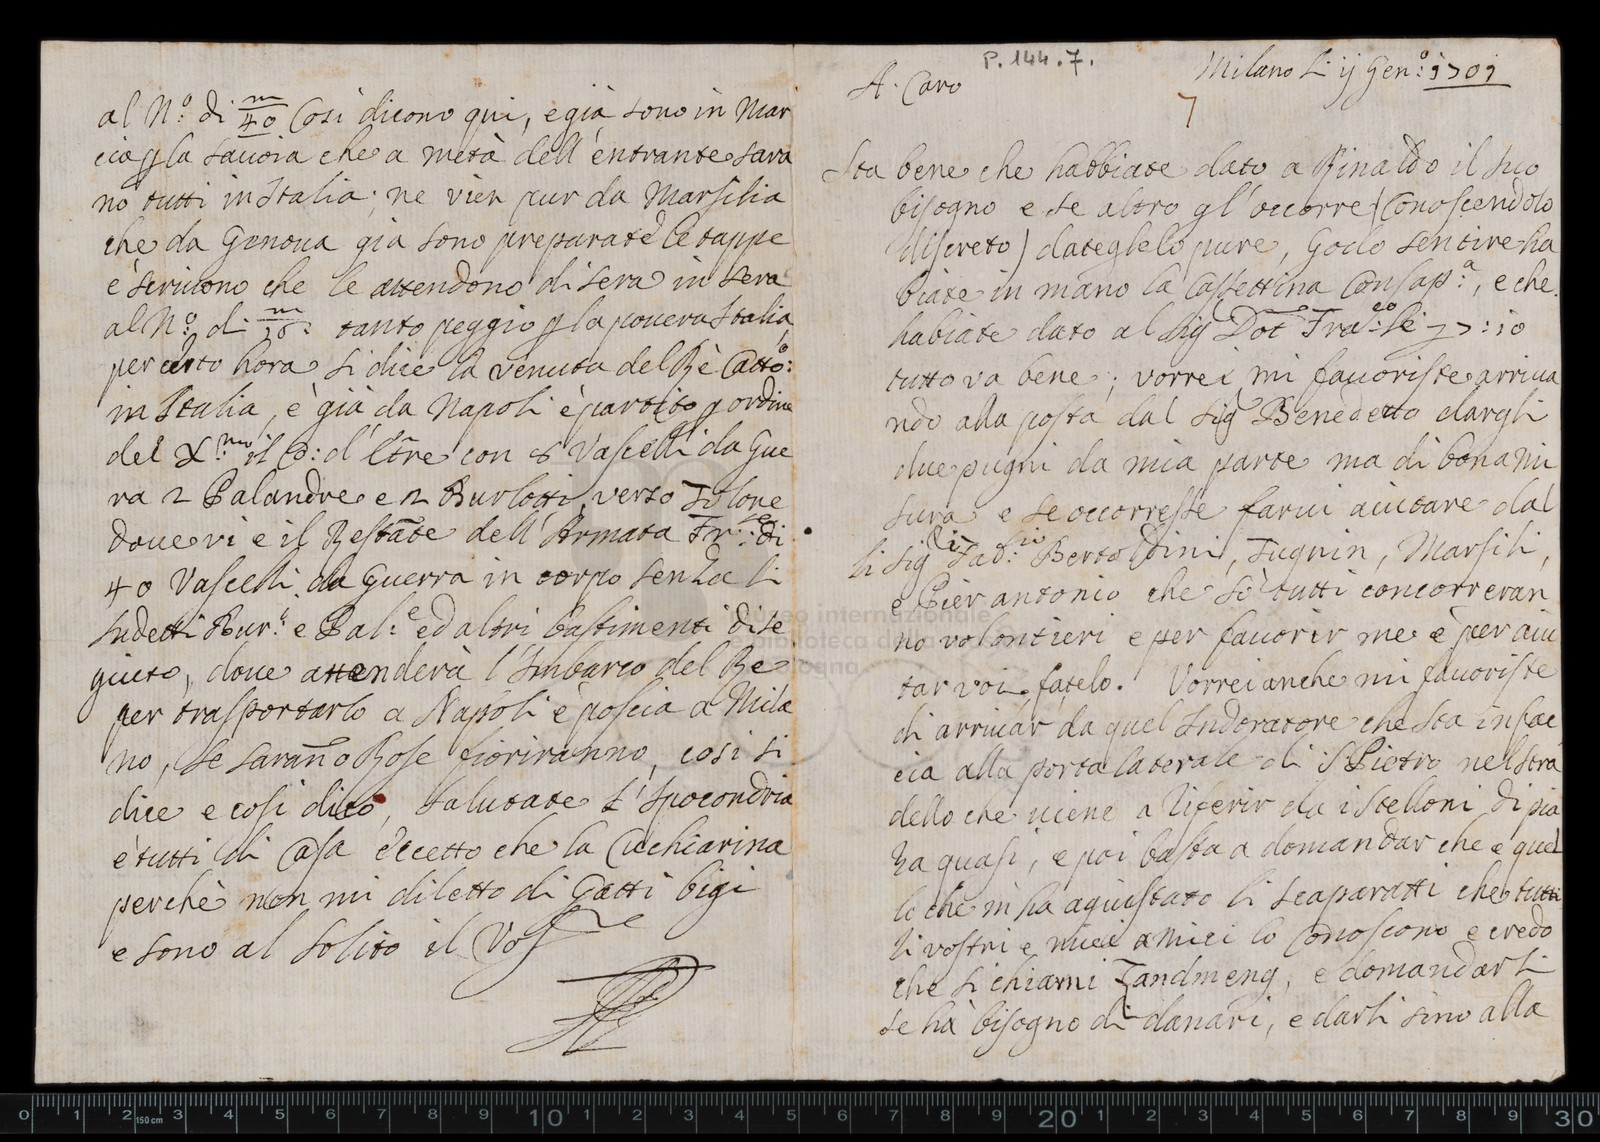 P. 144. 7.
Milano li ij Genº: 1701
A. Caro
7
Sta bene che habbiate dato a Rinaldo il suo
bisogno e se altro gl'occorre (Conoscendolo
discreto) dateglielo pure, Godo sentire ha
biate in mano la Cassettina Consapª, e che
habiate dato al Sig Dot Fraco: li 77:10
tutto va bene; vorrei mi favoriste arriva
ndo alla posta dal Sig Benedetto dargli
due pugni da mia parte ma di bona mi
sura e se occorresse farvi aiutare dal
li Sig Bertoldini, Tugnin, Marsili,
e Pier antonio che sò tutti concorreran
no volontieri e per favorir me e per aiu
tar voi fatelo. Vorrei anche mi favoriste
di arrivar da quel Indoratore che sta in fac
cia alla porta laterale di S. Pietro nel stra
dello che viene a riferir da i Stelloni di pia
za quasi, e poi basta a domandar che è quel
lo che m'ha agiustato li scaparatti che tutti
li vostri e miei amici lo conoscono e credo
che si chiami Zandmeng, e domandarli
se hà bisogno di danari, e darli sino alla
al Nº: di m/40 Cosi dicono qui, e già sono in Mar
cia p la Savoia che a metà dell'entrante sara
no tutti in Italia; ne vien pur da Marsilia
che da Genova già sono preparate le tappe
e scrivono che le attendono di sera in sera
al Nº: di m/ tanto peggio p la povera Italia,
per certo hora si dice la venuta del Rè Cattº:
in Italia, è già da Napoli è partito p ordine
del Xmo: il D: d'Etre con 8 Vascelli da Gue
ra 2 Palandre e 2 Burlotti, verso Tolone
dove vi è il Restante dell'Armata Fr: di
40 Vascelli da Guerra in corpo senza li
sudetti Bur:ti e Pal:e ed altri bastimenti di se
guito, dove attenderà l'Imbarco del Re
per trasportarlo a Napoli è poscia a Mila
no, se saranno Rose fioriranno, cosi si
dice e cosi dico, salutate l'Ipocondria
è tutti di Casa eccetto che la Cuchiarina
perchè non mi diletto di Gatti bigi
e sono al solito il Vos